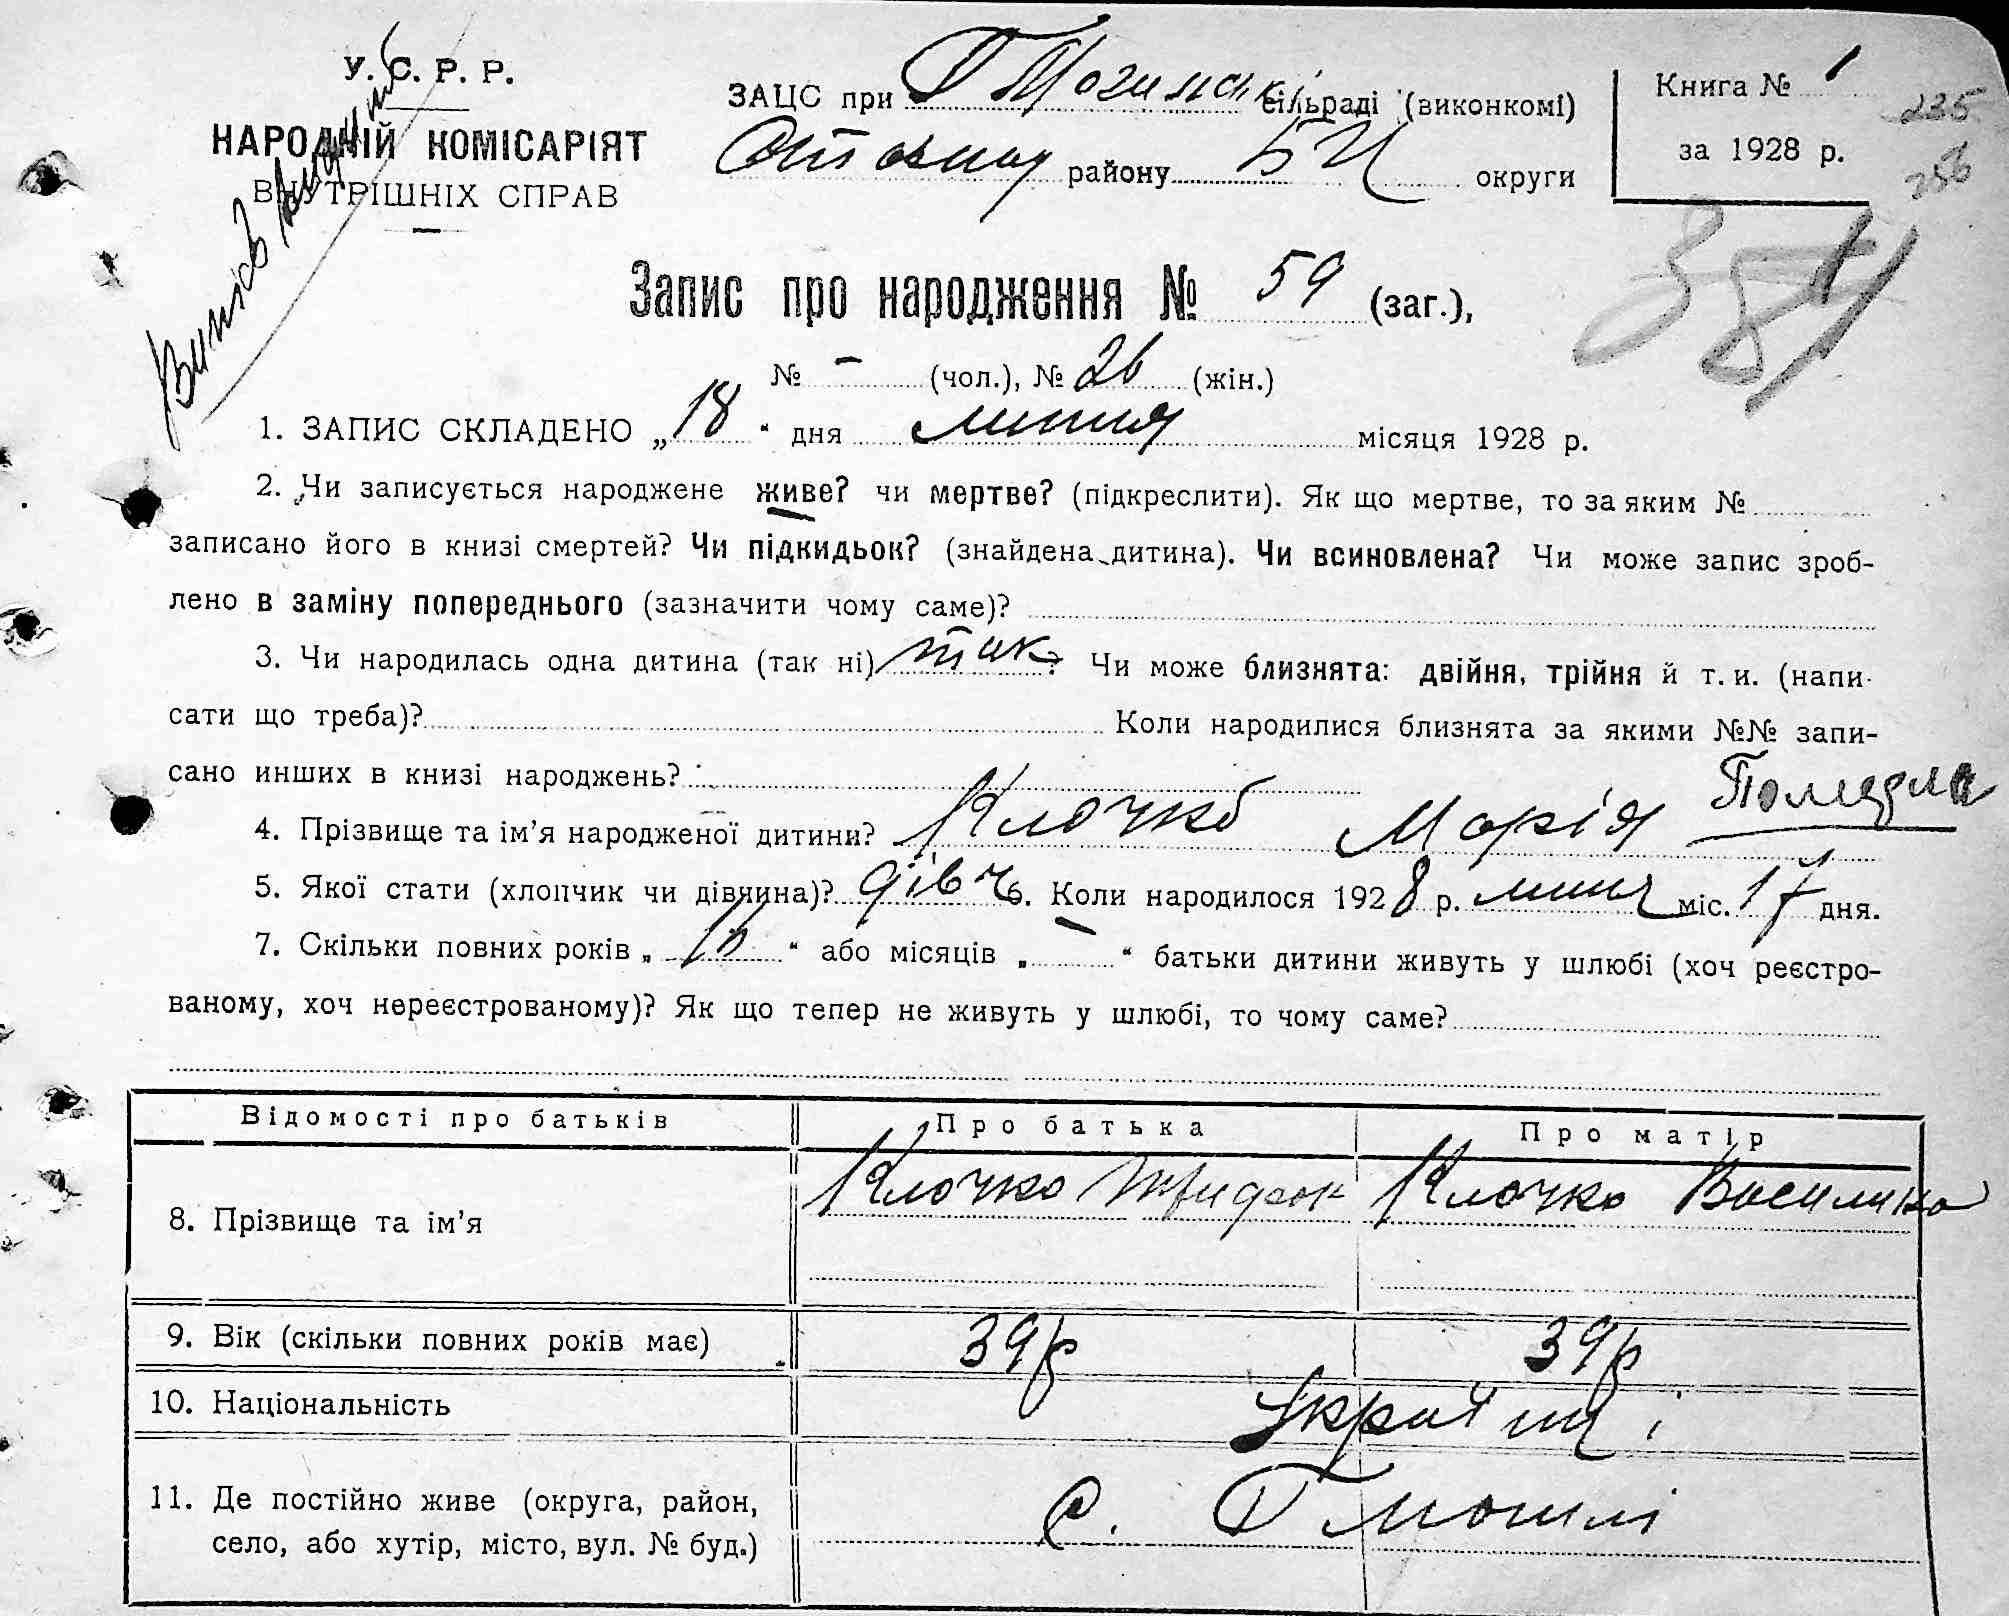 У. С. Р. Р.
НАРОДНІЙ КОМІСАРІЯТ
ВНУТРІШНІХ СПРАВ
ЗАЦС при Г Могилах сільраді (виконкомі)
району БЦ округи
Книга № 1
за 1928 р.
235
384
Запис про народження № 59 (заг.),
№ - (чол.), № 26 (жін.)
1. ЗАПИС СКЛАДЕНО „18“ дня липня місяця 1928 р.
2. Чи записується народжене живе? чи мертве? (підкреслити). Як що мертве, то за яким №
записано його в книзі смертей? Чи підкидьок? (знайдена дитина). Чи всиновлена? Чи може запис зроб-
лено в заміну попереднього (зазначити чому саме)?
3. Чи народилась одна дитина (так ні) так? Чи може близнята: двійня, трійня й т. и. (напи-
сати що треба)? Коли народилися близнята за якими №№ запи-
сано инших в книзі народжень?
4. Прізвище та ім’я народженої дитини? Клочко Марія
5. Якої стати (хлопчик чи дівчина)? дівч 6. Коли народилося 1928 р. липня міс. 17 дня.
7. Скільки повних років „ “ або місяців „-“ батьки дитини живуть у шлюбі (хоч реєстро-
ваному, хоч нереєстрованому)? Як що тепер не живуть у шлюбі, то чому саме?
Відомості про батьків Про батька Про матір
8. Прізвище та ім’я Клочко Трифон Клочко Василина
9. Вік (скільки повних років має) 39 р 39 р
10. Національність Українці
11. Де постійно живе (округа, район, с. Г Могилі
село, або хутір, місто, вул. № буд.)